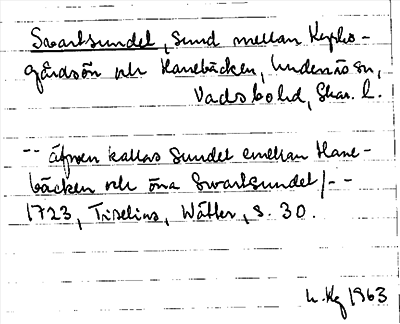 Svartsundet, sund mellan Kyrko-
gårdsön och Hanebäcken, Undenäs sn,
Vadsbo hd, Skar. l.
-- äfwen kallas sundet emellan Hane-
bäcken och öna Swartsundet/--
1723, Tiselius, Wätter, s. 30.
1963